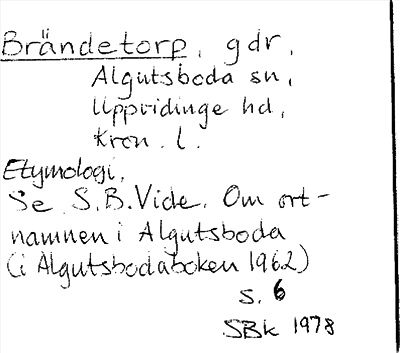 Brändetorp, gdr,
Algutsboda sn,
Uppvidinge hd,
Kron. l.
Etymologi.
Se S.B. Vide. Om ort-
namnen i Algutsboda
(i Algutsbodaboken 1962)
s. 6
SBk 1978